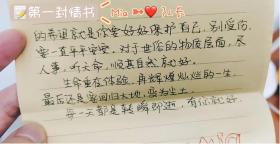 第一封情书 Mia ❤️ 弘卡
的希望就是你要好好保护自己，别受伤，
要一直平平安安。对于世俗的物质层面，尽
人事，听天命，顺其自然就好。
生命重在体验，再辉煌灿烂的一生，
最后还是要回归大地，尘为尘土。
每一天都是转瞬即逝，有你就好。